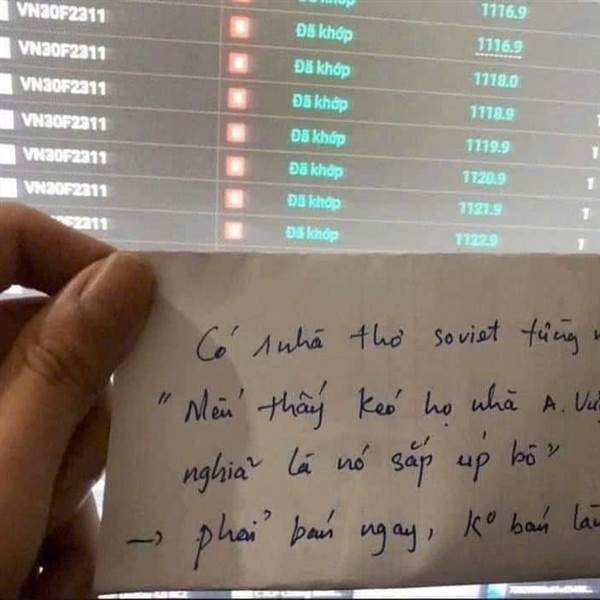 VN30F2311 Đã khớp 1116.9
VN30F2311 Đã khớp 1116.9
VN30F2311 Đã khớp 1118.0
VN30F2311 Đã khớp 1118.9
VN30F2311 Đã khớp 1119.9
VN30F2311 Đã khớp 1120.9
Đã khớp 1121.9
Đã khớp 1122.9
Có 1 nhà thơ soviet từng
"Nếu thấy kéo họ nhà A.
nghĩa là nó sắp úp bô"
→ phải bán ngay, ko bán